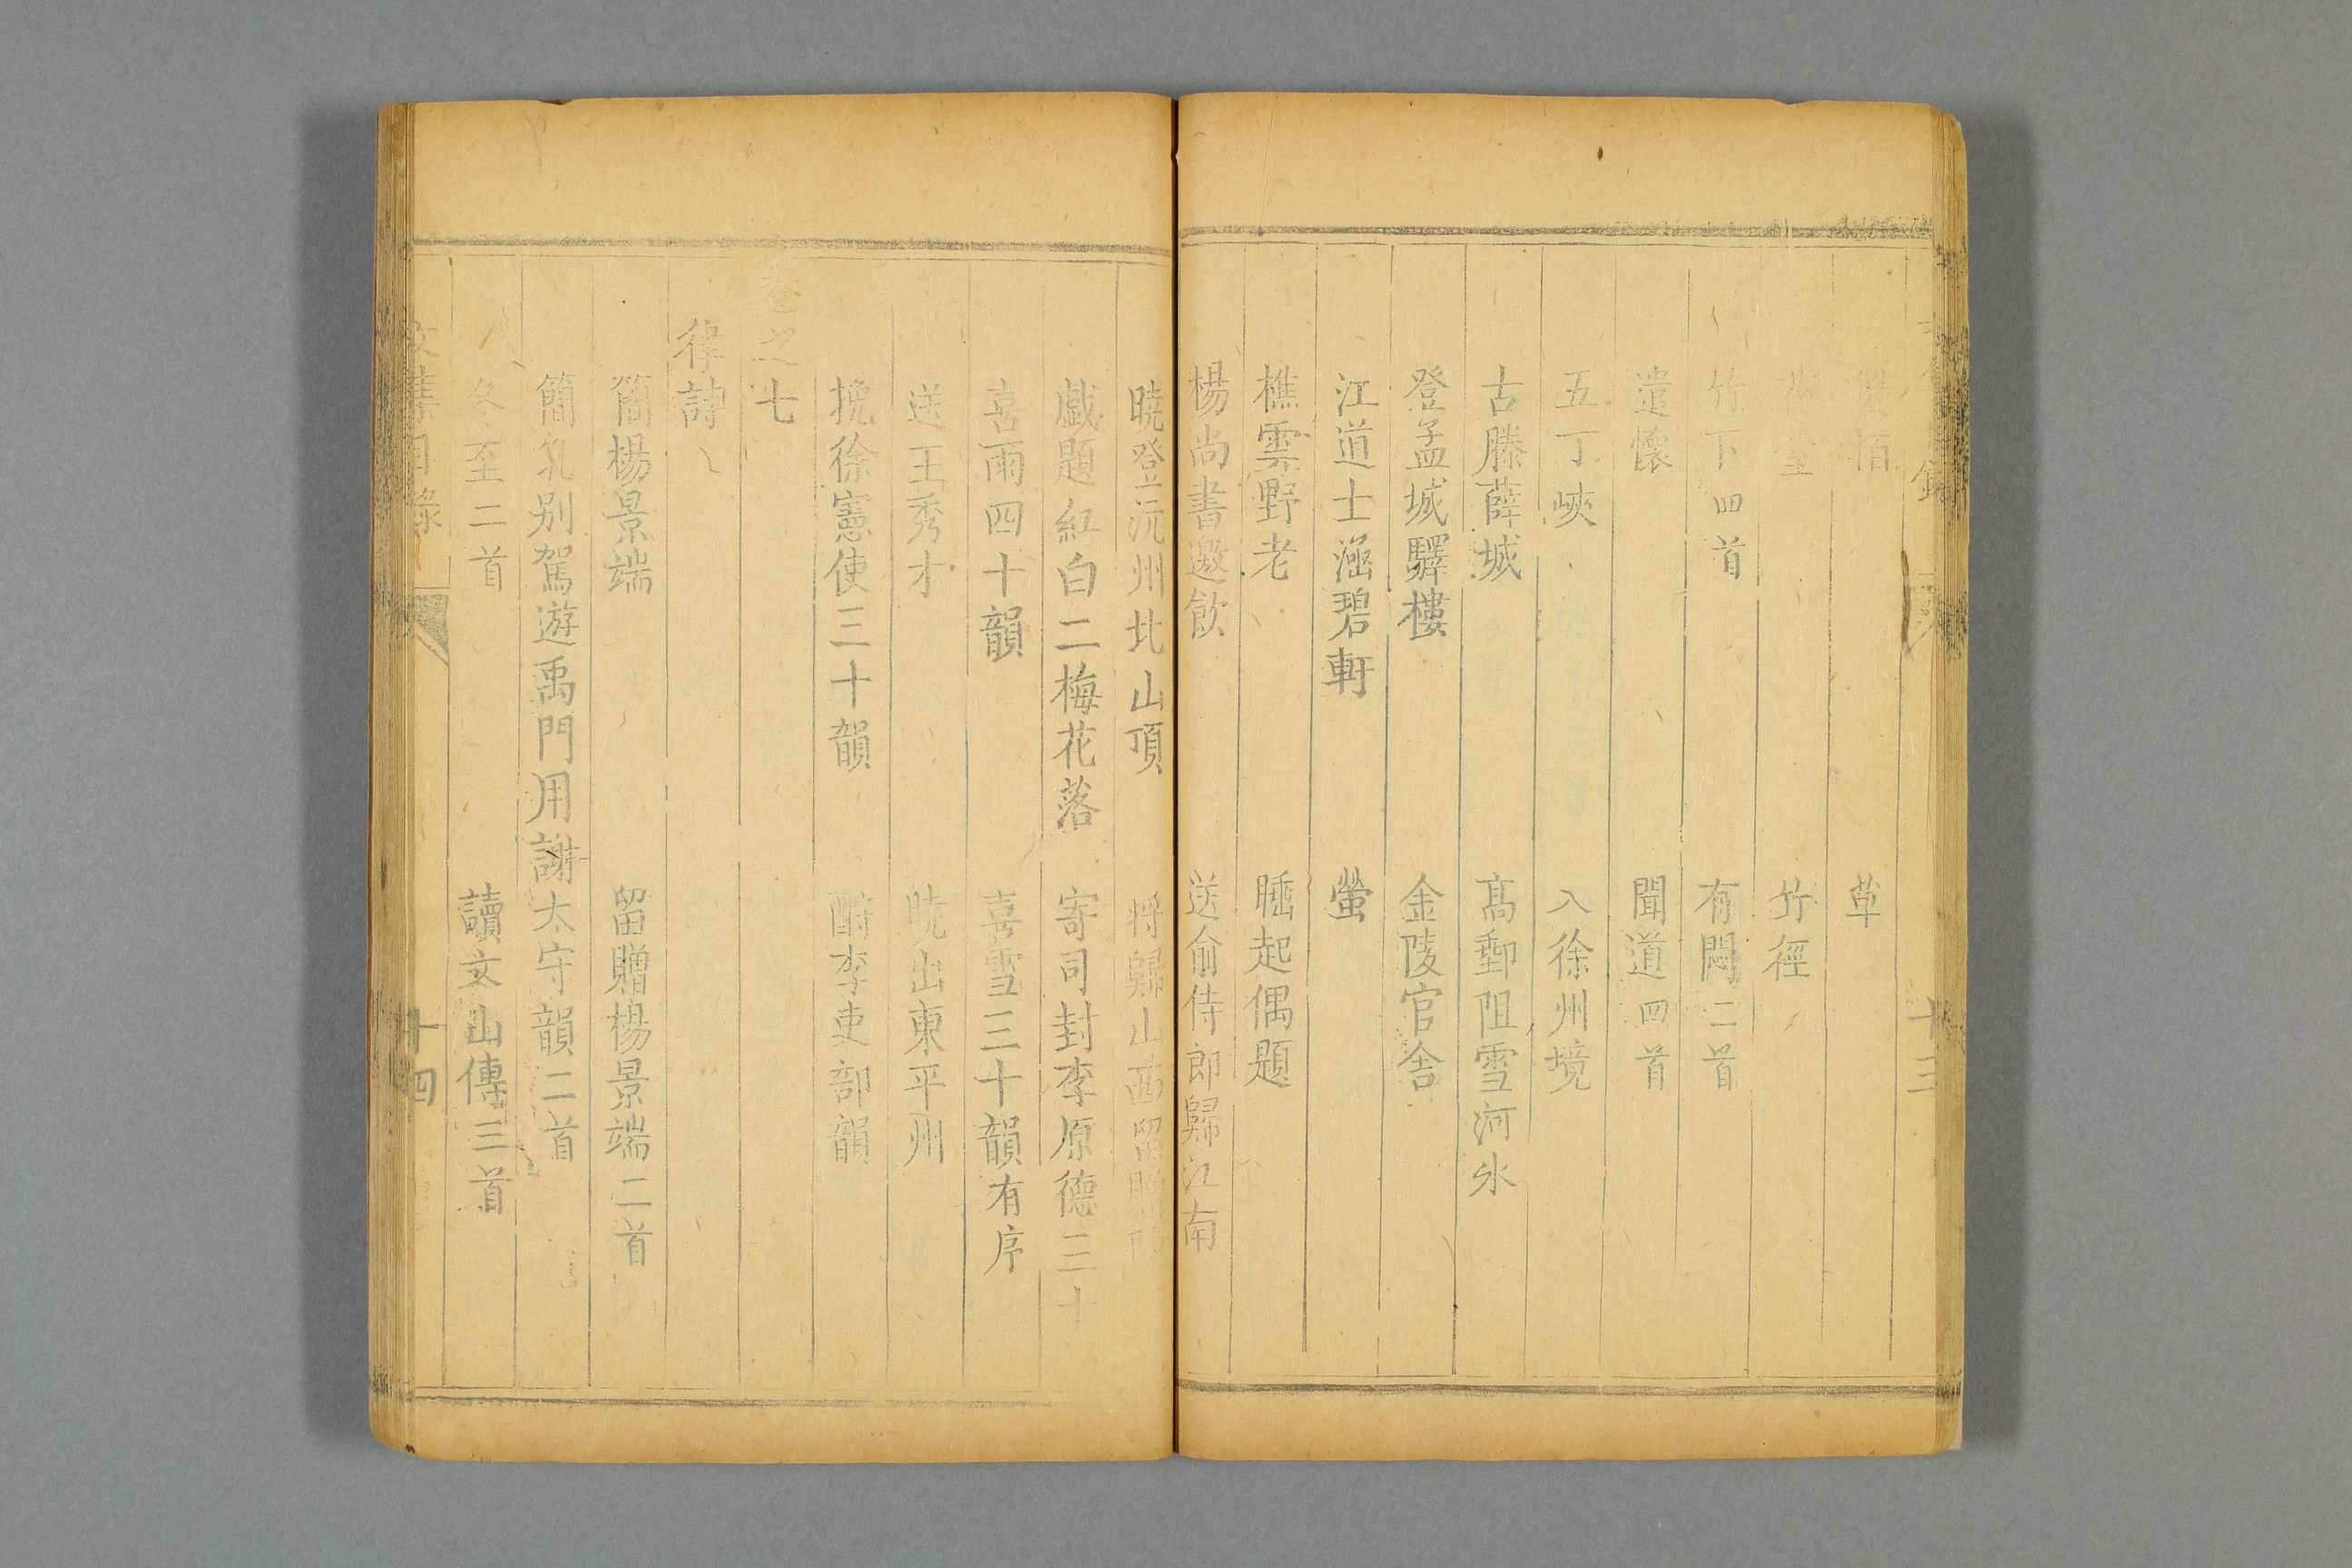 柏　草
竹徑
竹下四首　有悶二首
遣懷　聞道四首
五丁峽　入徐州境
古滕薛城　髙郵阻雪河氷
登孟城驛樓　金陵官舍
江道士涵碧軒　螢
樵雲野老　睡起偶題
楊尚書邀飲　送俞侍郎歸江南
十三
曉登沅州北山頂　將歸山西留贈
戯題紅白二梅花落　寄司封李原德三十
喜雨四十韻　喜雪三十韻有序
送王秀才　晩出東平州
挽徐憲使三十韻　酧李吏部韻
卷之七
律詩
簡楊景端　留贈楊景端二首
簡氖别駕遊禹門用謝太守韻二首
冬至二首　讀文山傳三首
文集目錄　十四